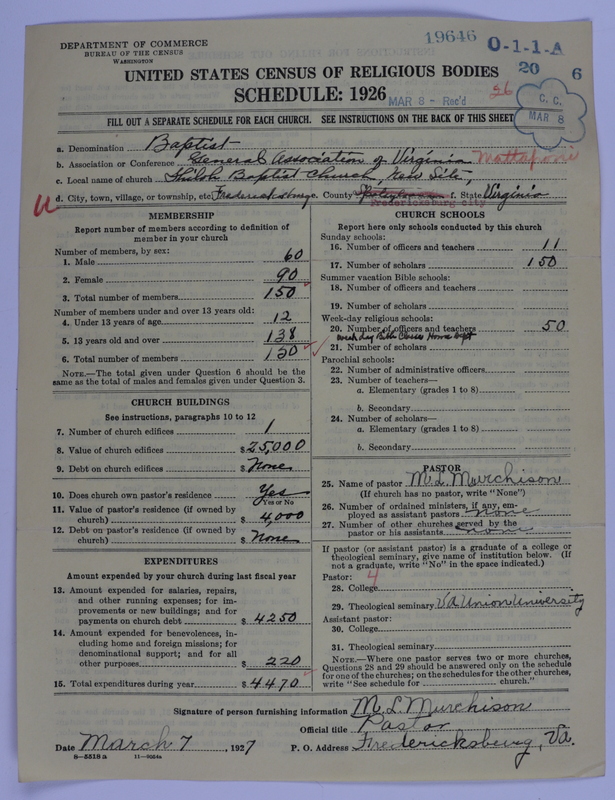 DEPARTMENT OF COMMERCE
BUREAU OF THE CENSUS
WASHINGTON
19646 0-1-1-A
20 6
UNITED STATES CENSUS OF RELIGIOUS BODIES
SCHEDULE: 1926
MAR 8 - Rec'd
26
C. C.
MAR 8
FILL OUT A SEPARATE SCHEDULE FOR EACH CHURCH. SEE INSTRUCTIONS ON THE BACK OF THIS SHEET
a. Denomination Baptist
b. Association or Conference General Association of Virginia Mattaponi
c. Local name of church Shiloh Baptist Church, New Site,
d. City, town, village, or township, etc. Fredericksburg e. County Spotsylvania f. State Virginia
Fredericksburg City
MEMBERSHIP
Report number of members according to definition of
member in your church
Number of members, by sex:
1. Male 60
2. Female 90
3. Total number of members 150
Number of members under and over 13 years old:
4. Under 13 years of age 12
5. 13 years old and over 138
6. Total number of members 150
NOTE.—The total given under Question 6 should be the
same as the total of males and females given under Question 3.
CHURCH BUILDINGS
See instructions, paragraphs 10 to 12
7. Number of church edifices 1
8. Value of church edifices $25,000
9. Debt on church edifices $None
10. Does church own pastor's residence Yes
Yes or No
11. Value of pastor's residence (if owned by
church) $4,000
12. Debt on pastor's residence (if owned by
church) $None
EXPENDITURES
Amount expended by your church during last fiscal year
13. Amount expended for salaries, repairs,
and other running expenses; for im-
provements or new buildings; and for
payments on church debt $4250
14. Amount expended for benevolences, in-
cluding home and foreign missions; for
denominational support; and for all
other purposes $220
15. Total expenditures during year $4470
CHURCH SCHOOLS
Report here only schools conducted by this church
Sunday schools:
16. Number of officers and teachers 11
17. Number of scholars 150
Summer vacation Bible schools:
18. Number of officers and teachers
19. Number of scholars
Week-day religious schools:
20. Number of officers and teachers 50
Week day Bible Classes Home Dept
21. Number of scholars
Parochial schools:
22. Number of administrative officers
23. Number of teachers—
a. Elementary (grades 1 to 8)
b. Secondary
24. Number of scholars—
a. Elementary (grades 1 to 8)
b. Secondary
PASTOR
25. Name of pastor M. L. Murchison
(If church has no pastor, write "None")
26. Number of ordained ministers, if any, em-
ployed as assistant pastors none
27. Number of other churches served by the
pastor or his assistants none
If pastor (or assistant pastor) is a graduate of a college or
theological seminary, give name of institution below. (If
not a graduate, write "No" in the space indicated.)
Pastor: 4
28. College
29. Theological seminary Va Union University
Assistant pastor:
30. College
31. Theological seminary
NOTE.—Where one pastor serves two or more churches,
Questions 28 and 29 should be answered only on the schedule
for one of the churches; on the schedules for the other churches,
write "See schedule for church."
Signature of person furnishing information M. L. Murchison
Official title Pastor
Date March 7, 1927 P. O. Address Fredericksburg, Va.
8—5518 a 11—9064a